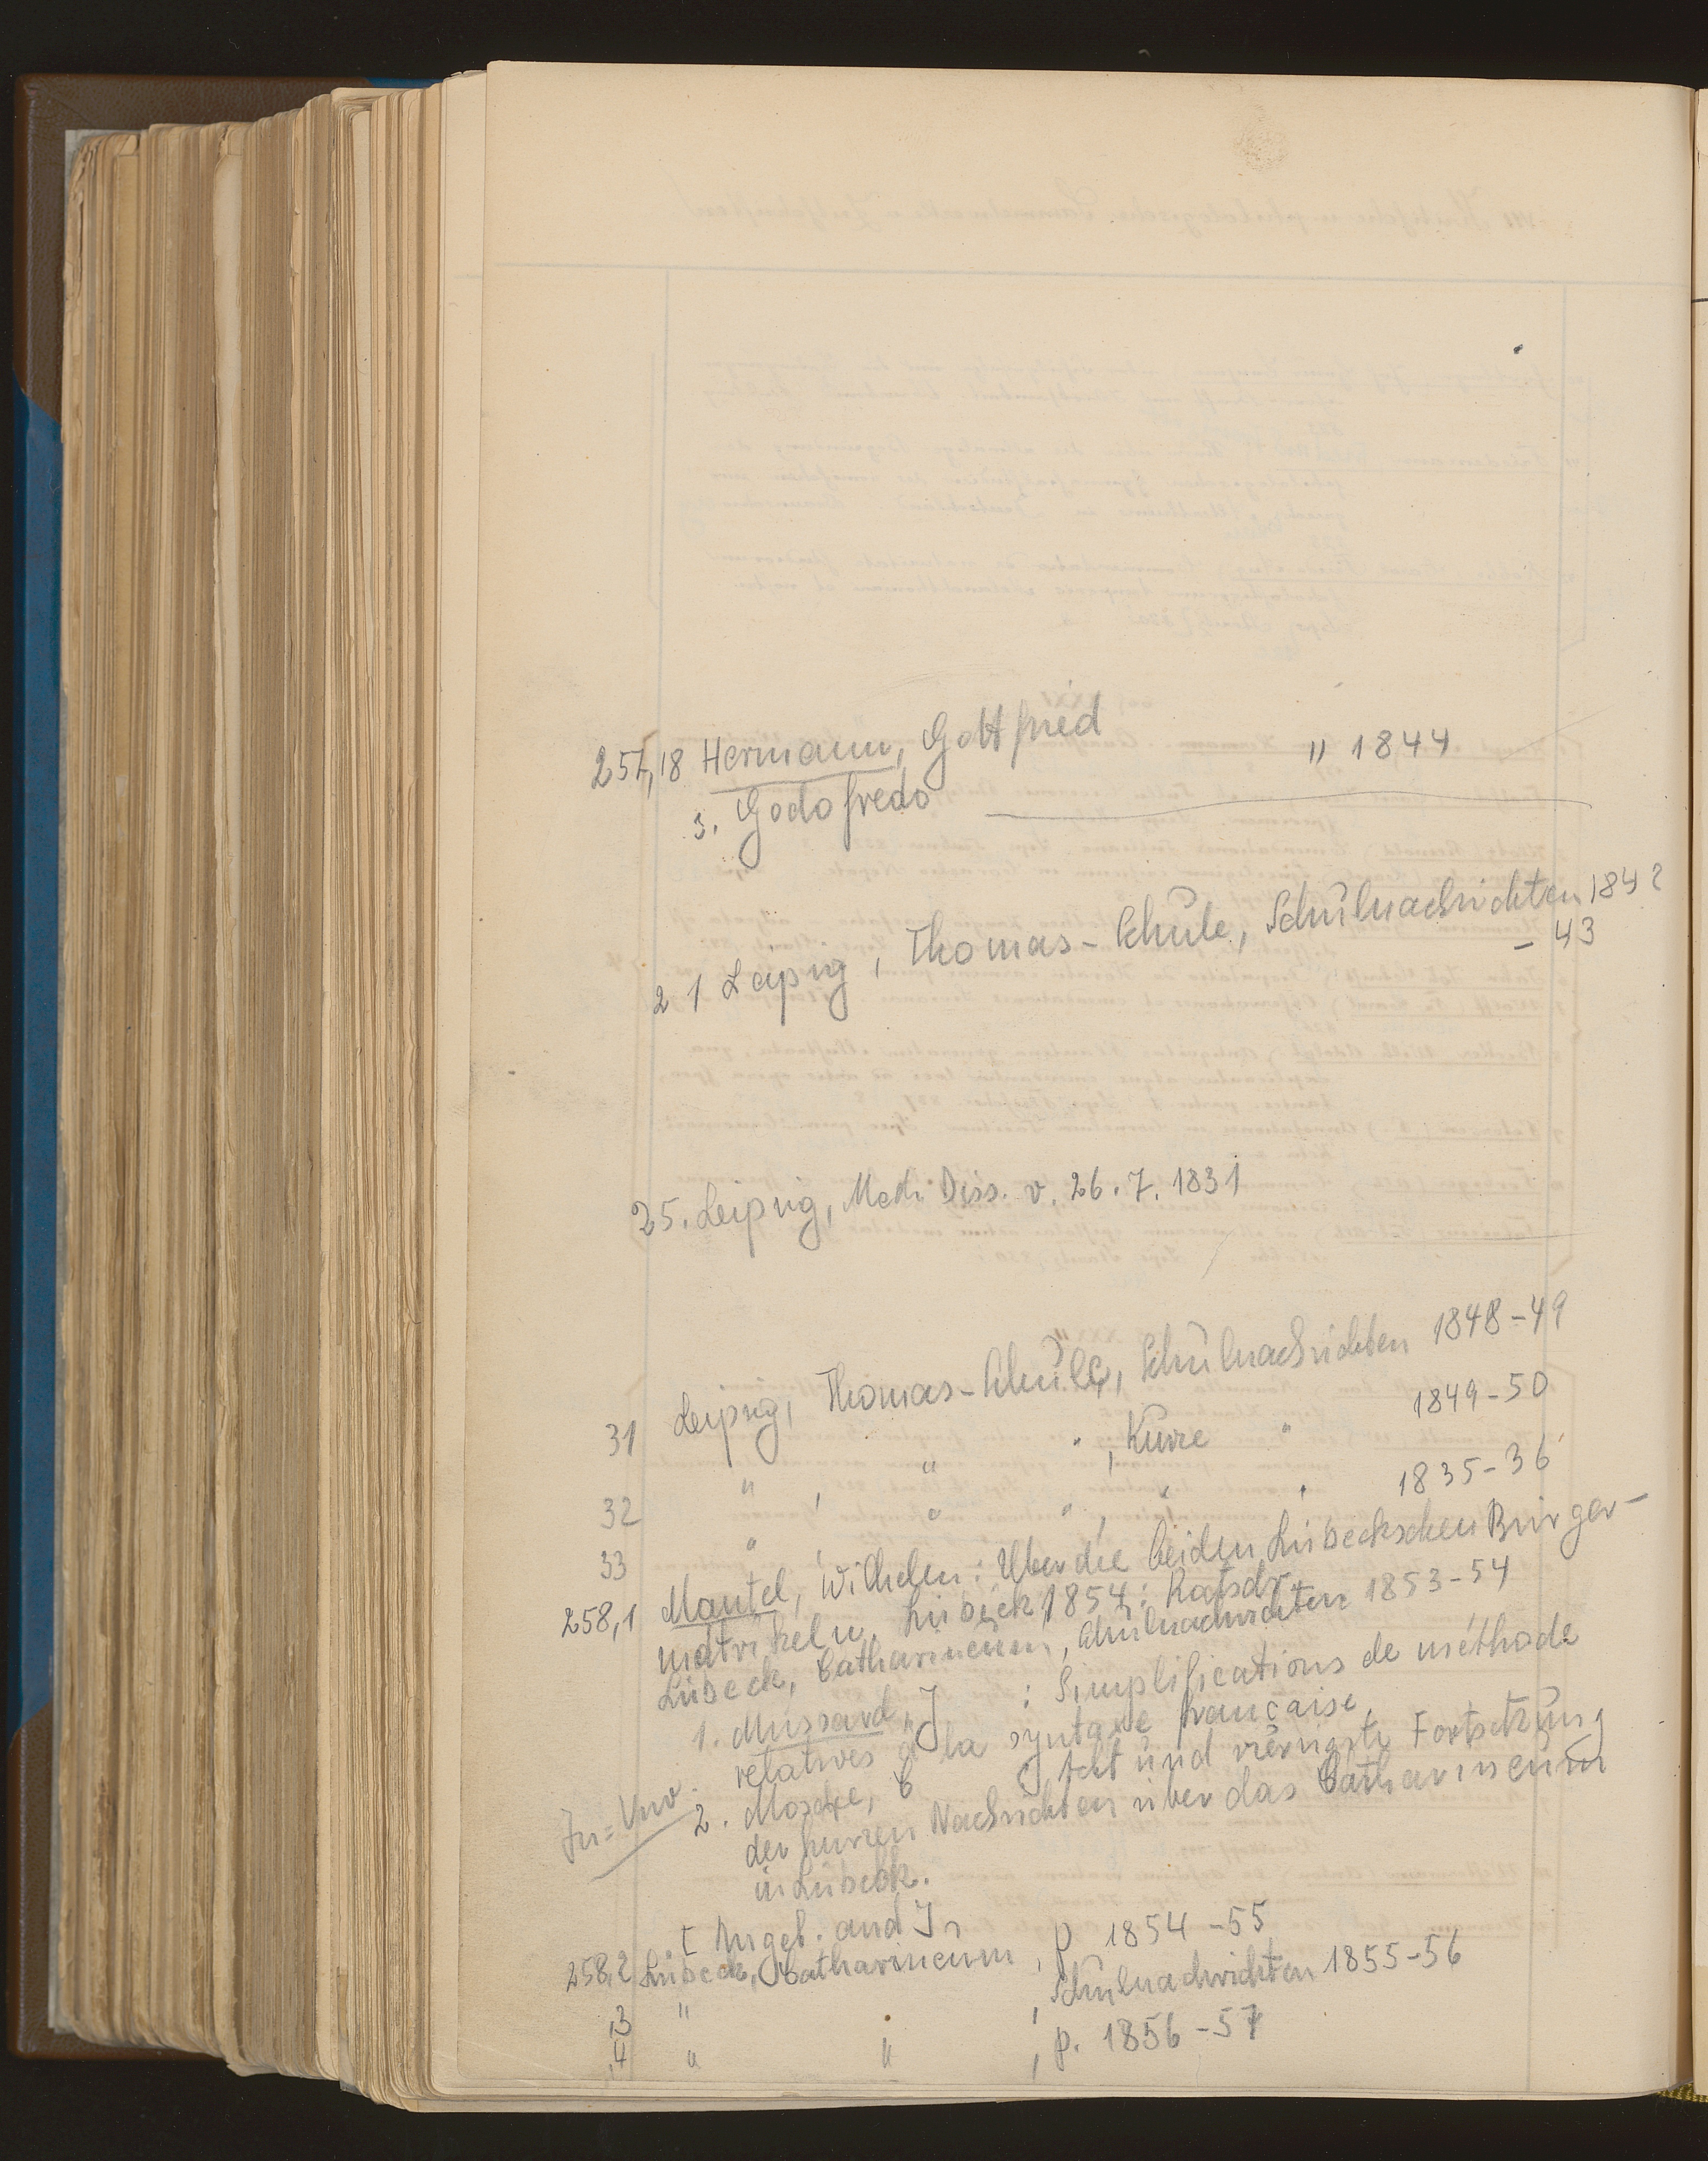 257,18 Hermann, Gottfried " 1844
s. Godofredo
21 Leipzig, Thomas-Schule, Schulnachrichten 1842
- 43
25. Leipzig, Med. Diss. v. 26. 7. 1831
31 Leipzig, Thomas-Schule, Schulnachrichten 1848-49
32 " , " " , Kurze " 1849-50
33 " , " " , " " 1835-36
258,1 Mantel, Wilhelm: Über die beiden Lübeckschen Bürger-
matrikeln. Lübeck 1854: Ratsdr.
Lübeck, Catharineum, Schulnachrichten 1853-54
1. Mussard, J : Simplifications de méthode
relatives à la syntaxe française.
2. Mosche, C Acht und vierzigste Fortsetzung
der kurzen Nachrichten über das Catharineum
in Lübeck.
[Angeb. and J
258,2 Lübeck, Catharineum, p 1854-55
,3 " " , Schulnachrichten 1855-56
,4 " " , p. 1856-57